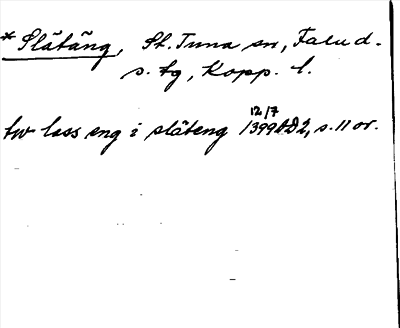 *Slätäng, St. Tuna sn, Falu d.
s. tg, Kopp. l.
12/7
tw lass eng i släteng 1399 AD2, s. 11 or.